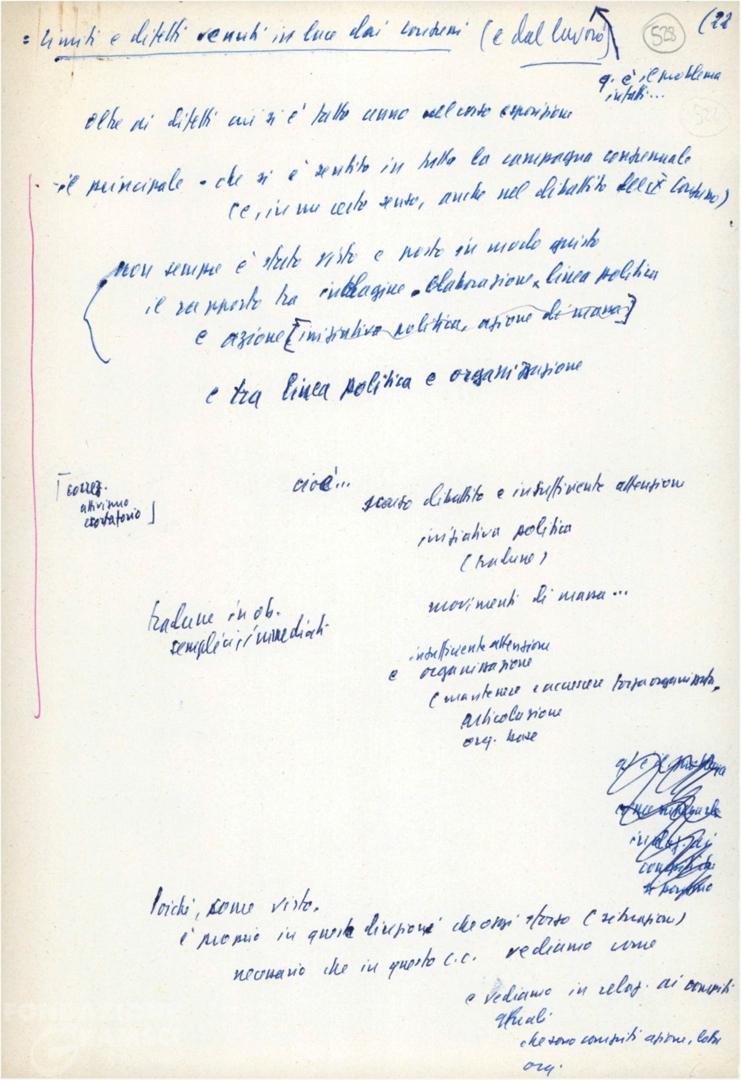 = Limiti e difetti venuti in luce dai congressi (e dal lavoro)
528
(22
q. è il problema
infatti...
oltre ai difetti cui si è fatto cenno nel corso esposizione
il principale - che si è sentito in tutta la campagna congressuale
(e, in un certo senso, anche nel dibattito del X Congresso)
non sempre è stato visto e posto in modo giusto
il rapporto tra indagine, elaborazione, linea politica
e azione [iniziativa politica, azione di massa]
e tra linea politica e organizzazione
cioè...
[correg.
attivismo
esortatorio]
scarso dibattito e insufficiente attenzione
iniziativa politica
(tradurre)
movimenti di massa...
tradurre in ob.
semplici, immediati
insufficiente attenzione
e organizzazione
(mantenere e accrescere forza organizzata,
articolazione
org. base
Poiché, come visto,
è proprio in questa direzione che oggi sforzo (situazione)
necessario che in questo C.C. vediamo come
e vediamo in relaz. ai compiti
attuali
che sono compiti azione, lotta
org.
FONDAZIONE